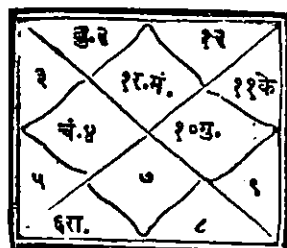 बु.२ १२
३ १र.मं. ११के
चं.४ १०गु.
५ ७ ९
६रा. ८